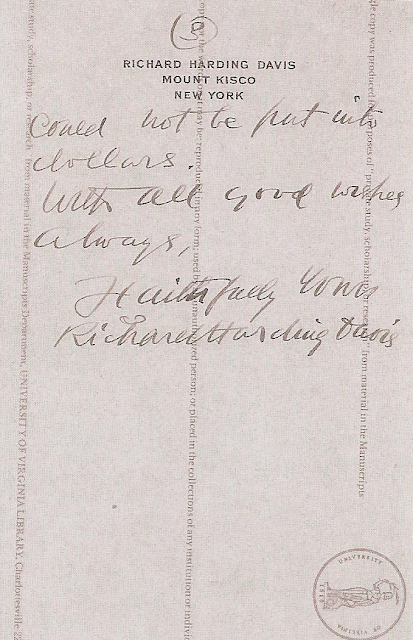 3
RICHARD HARDING DAVIS
MOUNT KISCO
NEW YORK
Could not be put into
dollars.
With all good wishes
always,
Faithfully Yours
Richard Harding Davis
ate study, scholarship, or research from material in the Manuscripts Department, UNIVERSITY OF VIRGINIA LIBRARY, Charlottesville
may be reproduced in any form, used by unauthorized person; or placed in the collections of any institution or
copy was produced for purposes of "private study, scholarship, or research" from material in the Manuscripts
UNIVERSITY
OF VIRGINIA